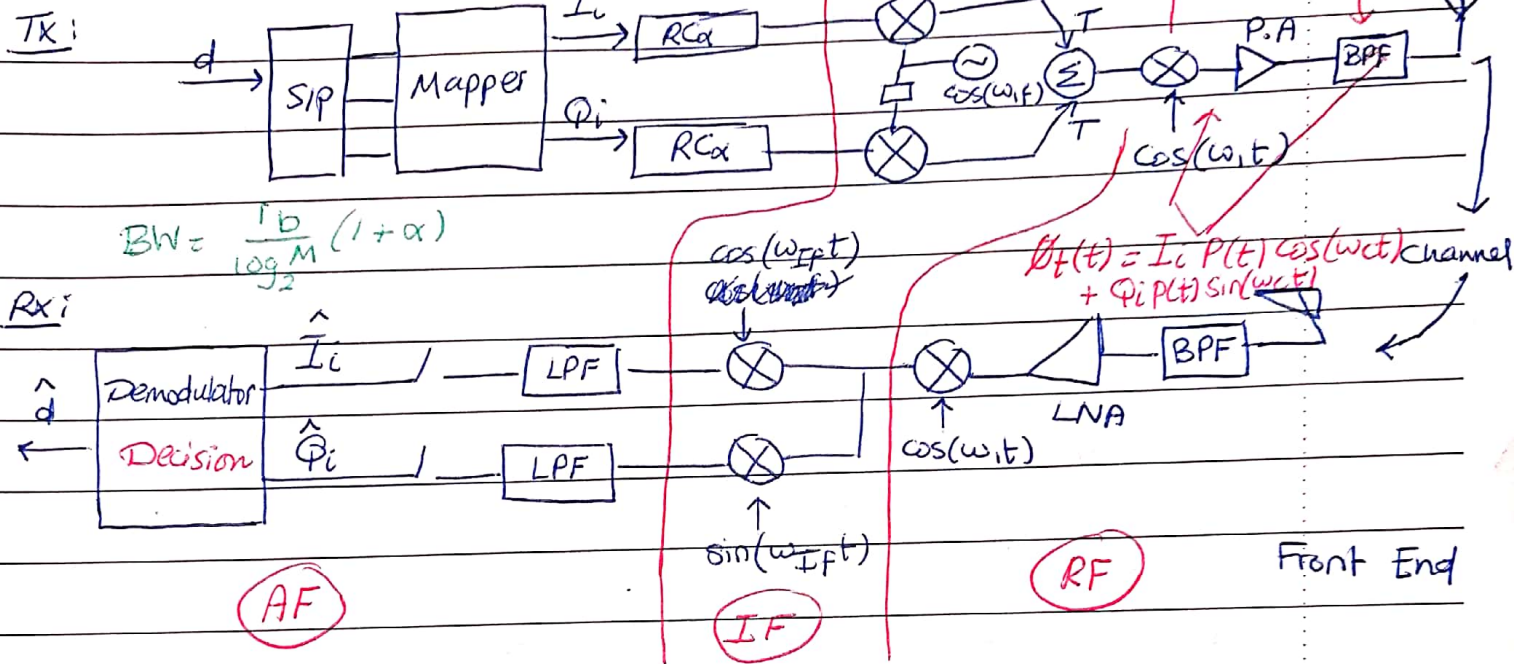 Tx:
d
S/P
Mapper
I_i
RCα
Q_i
RCα
cos(ω_IF)
T
Σ
T
cos(ω₁t)
P.A
BPF
BW = rb/log₂M (1+α)
Ø_t(t) = I_i P(t) cos(ωct)
+ Q_i P(t) sin(ωct)
Channel
Rx:
d̂
Demodulator
Decision
Î_i
Q̂_i
LPF
LPF
cos(ω_IF t)
sin(ω_IF t)
cos(ω₁t)
LNA
BPF
AF
IF
RF
Front End